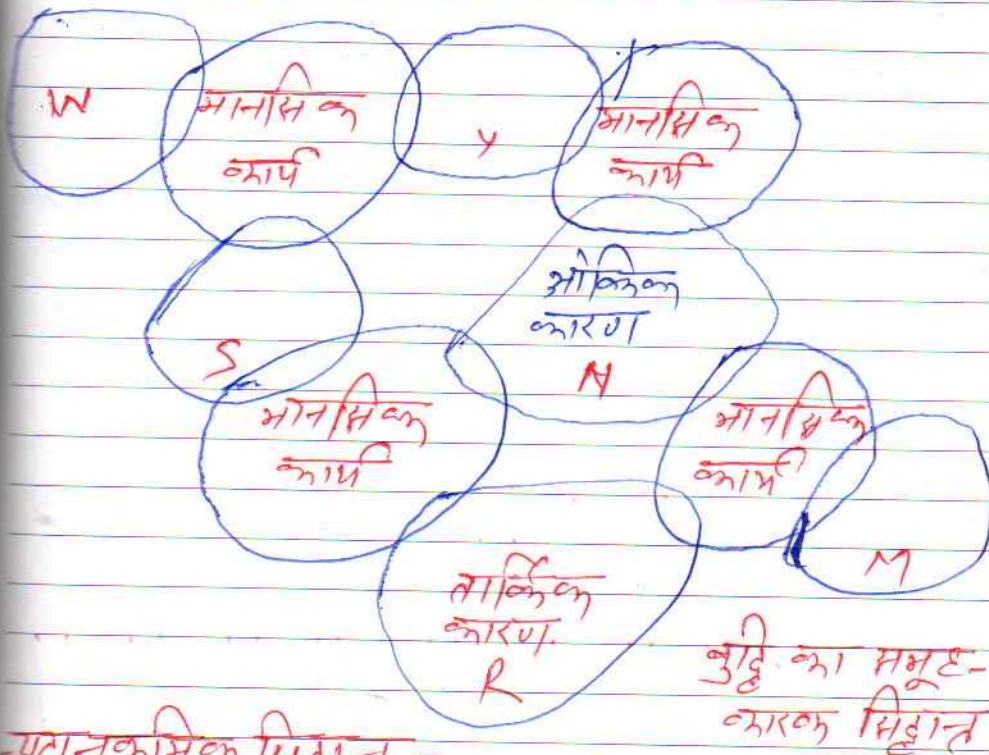 W
मानसिक
कार्य
Y
मानसिक
कार्य
S
आंकिक
कारण
N
मानसिक
कार्य
मानसिक
कार्य
M
तार्किक
कारण
R
बुद्धि का समूह-
कारक सिद्धान्त